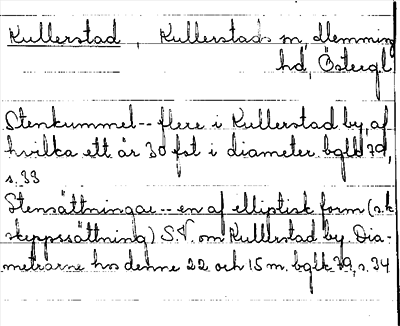 Kullerstad, Kullerstads sn, Memming
hd, Östergl.
Stenkummel -- flere i Kullerstad by, af
hvilka ett är 30 fot i diameter. bglk 39,
s. 33
Stensättningar -- en af elliptisk form (s.k.
skeppssättning) S.V. om Kullerstad by. Dia-
metrarne hos denne 22 och 15 m. bglk 39, s. 34